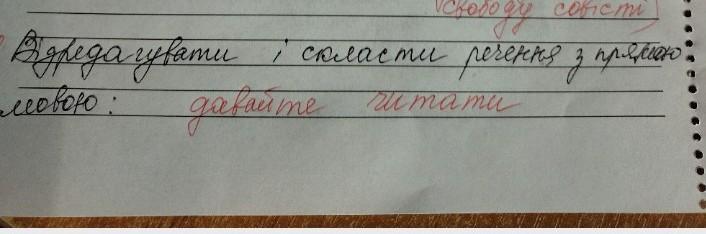 (свободу совісті)
Відредагувати і скласти речення з прямою
мовою: давайте читати